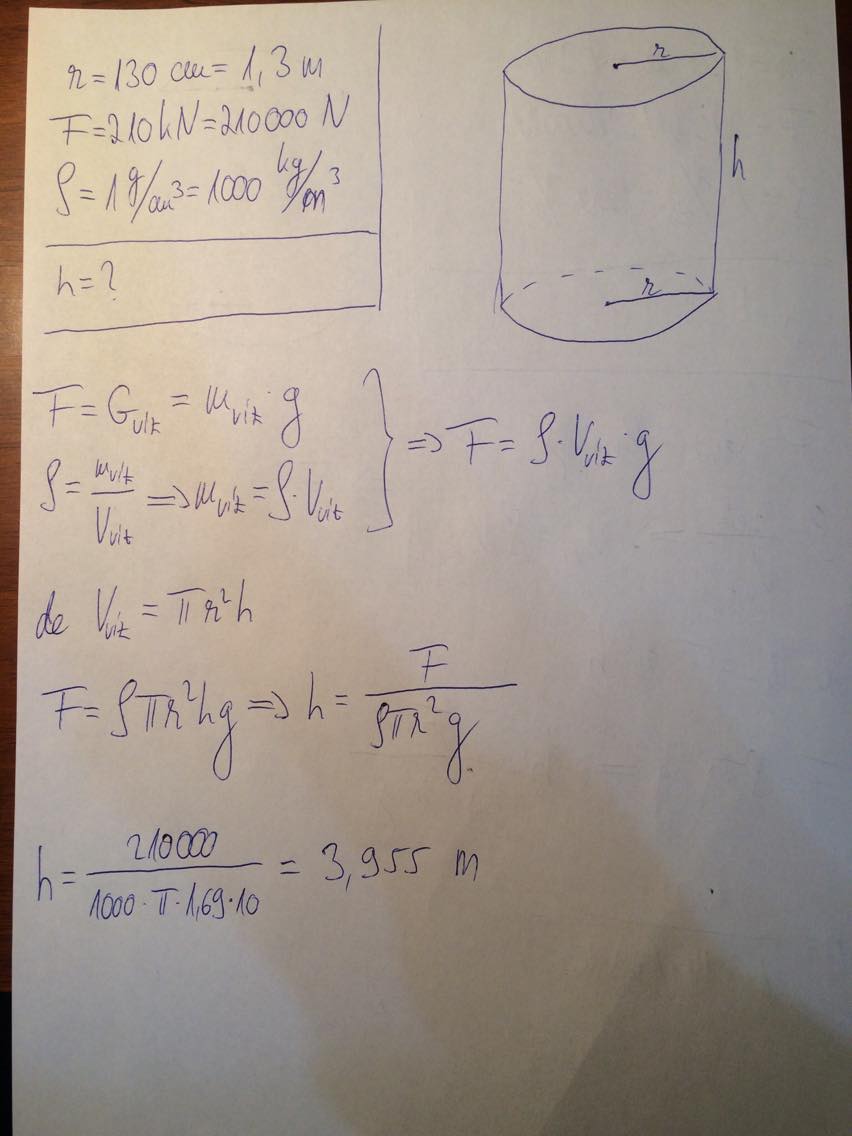 r = 130 cm = 1,3 m
F = 210 kN = 210000 N
ρ = 1 g/cm³ = 1000 kg/m³
h = ?
r
h
r
F = Gvíz = mvíz · g
ρ = mvíz / Vvíz => mvíz = ρ · Vvíz
} => F = ρ · Vvíz · g
de Vvíz = πr²h
F = ρπr²hg => h = F / ρπr²g
h = 210000 / 1000 · π · 1,69 · 10 = 3,955 m